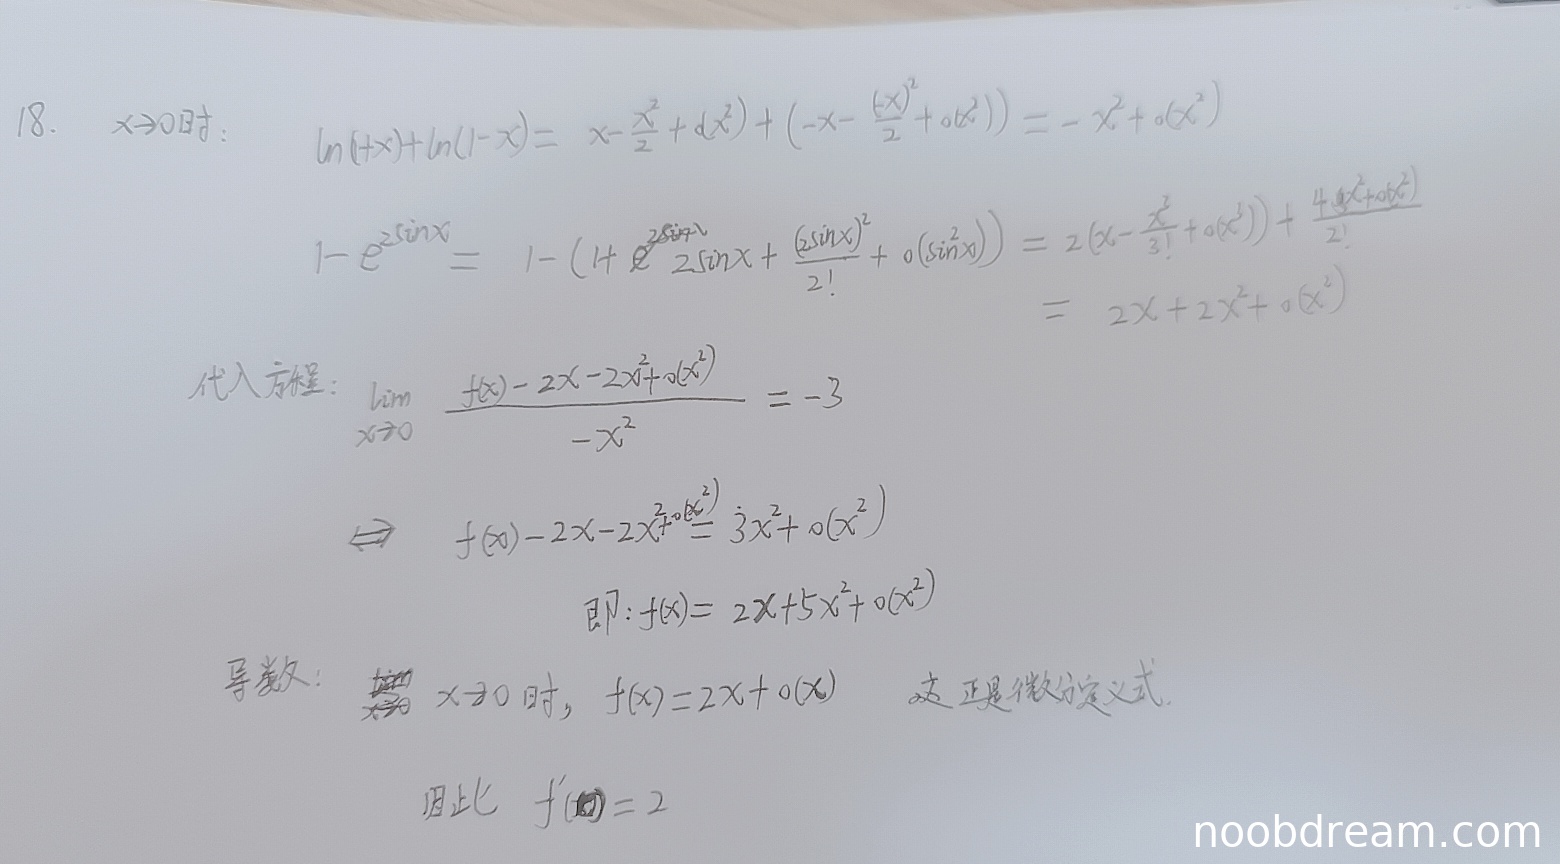 18. x→0时: ln(1+x)+ln(1-x)= x-x²/2+o(x²)+(-x-(-x)²/2+o(x²))=-x²+o(x²)
1-e^{2sinx} = 1-(1+2sinx+(2sinx)²/2!+o(sin²x)) = 2(x-x³/3!+o(x³))+(4x²+o(x²))/2!
= 2x+2x²+o(x²)
代入方程: lim x→0 (f(x)-2x-2x²+o(x²))/(-x²) = -3
⇔ f(x)-2x-2x²+o(x²) = 3x²+o(x²)
即: f(x)= 2x+5x²+o(x²)
导数: x→0时, f(x)=2x+o(x) 这正是微分定义式.
因此 f'(0)=2
noobdream.com